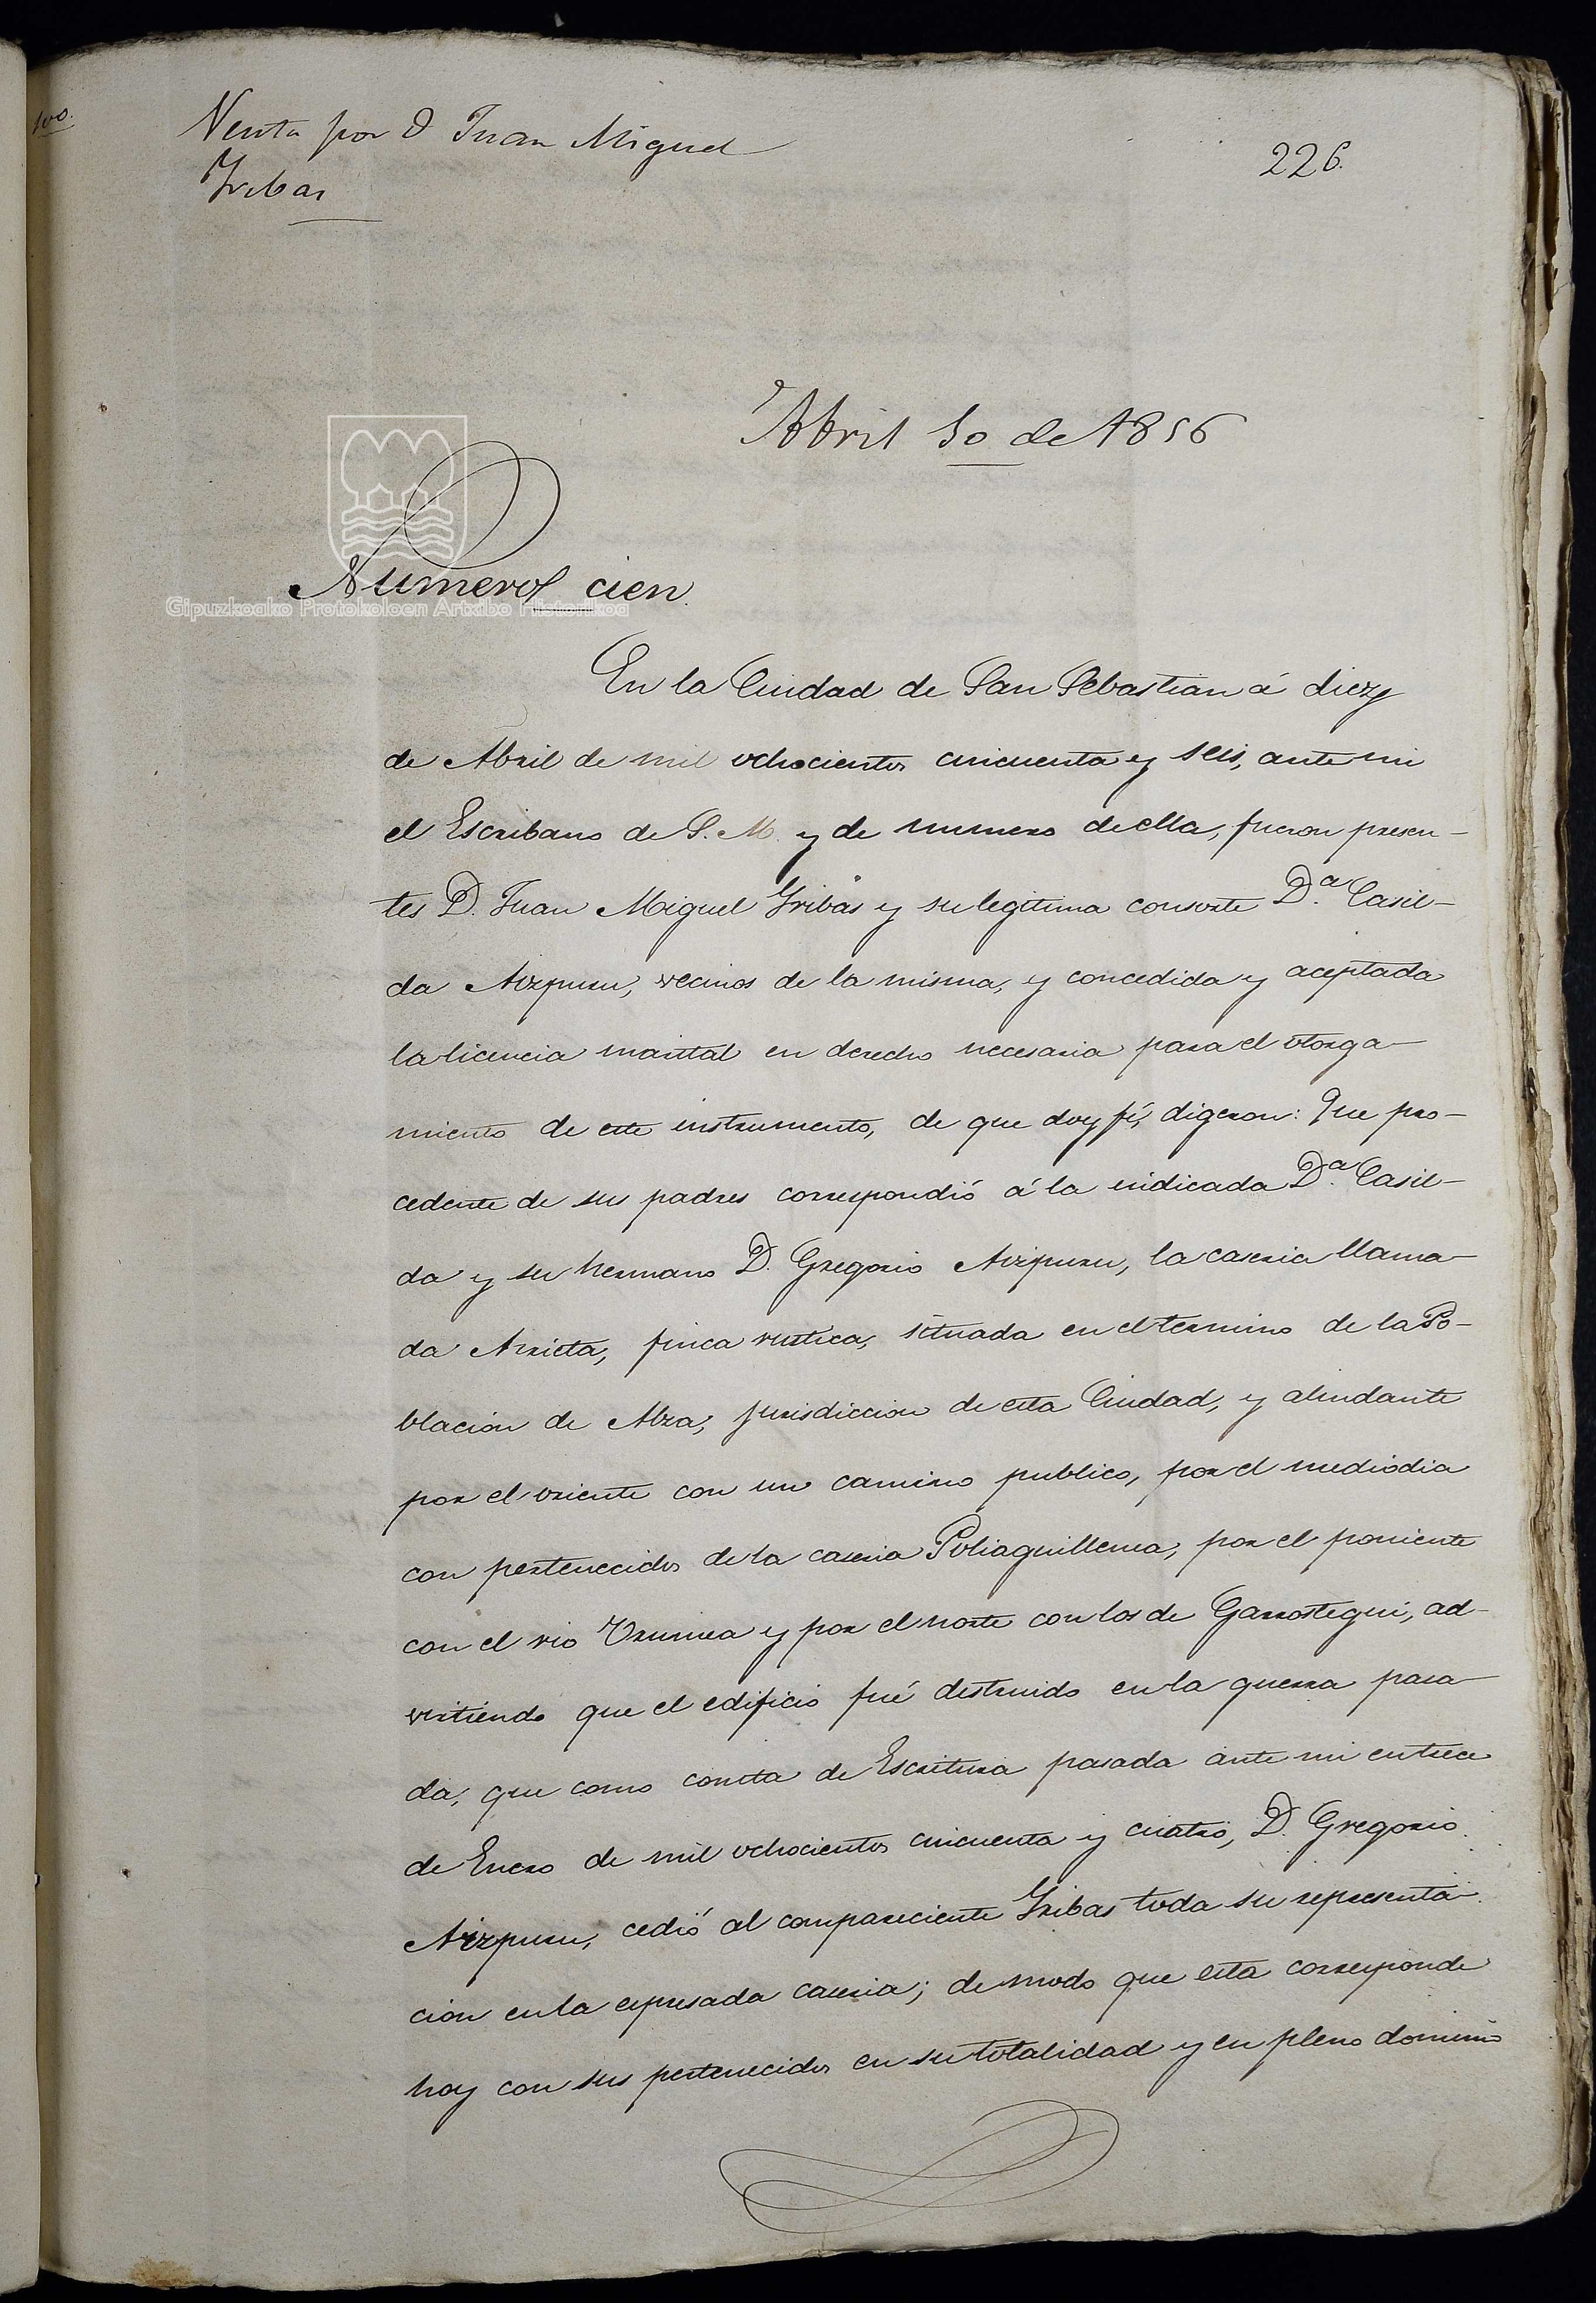 100.
Venta por D Juan Miguel
Iribas
226.
Abril 10 de 1856
Numero cien.
Gipuzkoako Protokoloen Artxibo Historikoa
En la Ciudad de San Sebastian á diez
de Abril de mil ochocientos cincuenta y seis, ante mi
el Escribano de S. M. y de numero de ella, fueron presen-
tes D. Juan Miguel Iribas y su legitima consorte D.ª Casil-
da Aizpuru, vecinos de la misma, y concedida y aceptada
la licencia marital en derecho necesaria para el otorga-
miento de este instrumento, de que doy fé, digeron: Que pro-
cedente de sus padres correspondió á la indicada D.ª Casil-
da y su hermano D. Gregorio Aizpuru, la caseria llama-
da Arrieta, finca rustica, situada en el termino de la Po-
blacion de Alza, jurisdiccion de esta Ciudad, y alindante
por el oriente con un camino publico, por el mediodia
con pertenecidos de la caseria Poliaguillenea, por el poniente
con el rio Urumea y por el norte con los de Garrostegui, ad-
virtiendo que el edificio fué destruido en la guerra pasa-
da; que como consta de Escritura pasada ante mi en trece
de Enero de mil ochocientos cincuenta y cuatro, D. Gregorio
Aizpuru, cedió al compareciente Iribas toda su representa-
cion en la espresada caseria; de modo que esta corresponde
hoy con sus pertenecidos en su totalidad y en pleno dominio